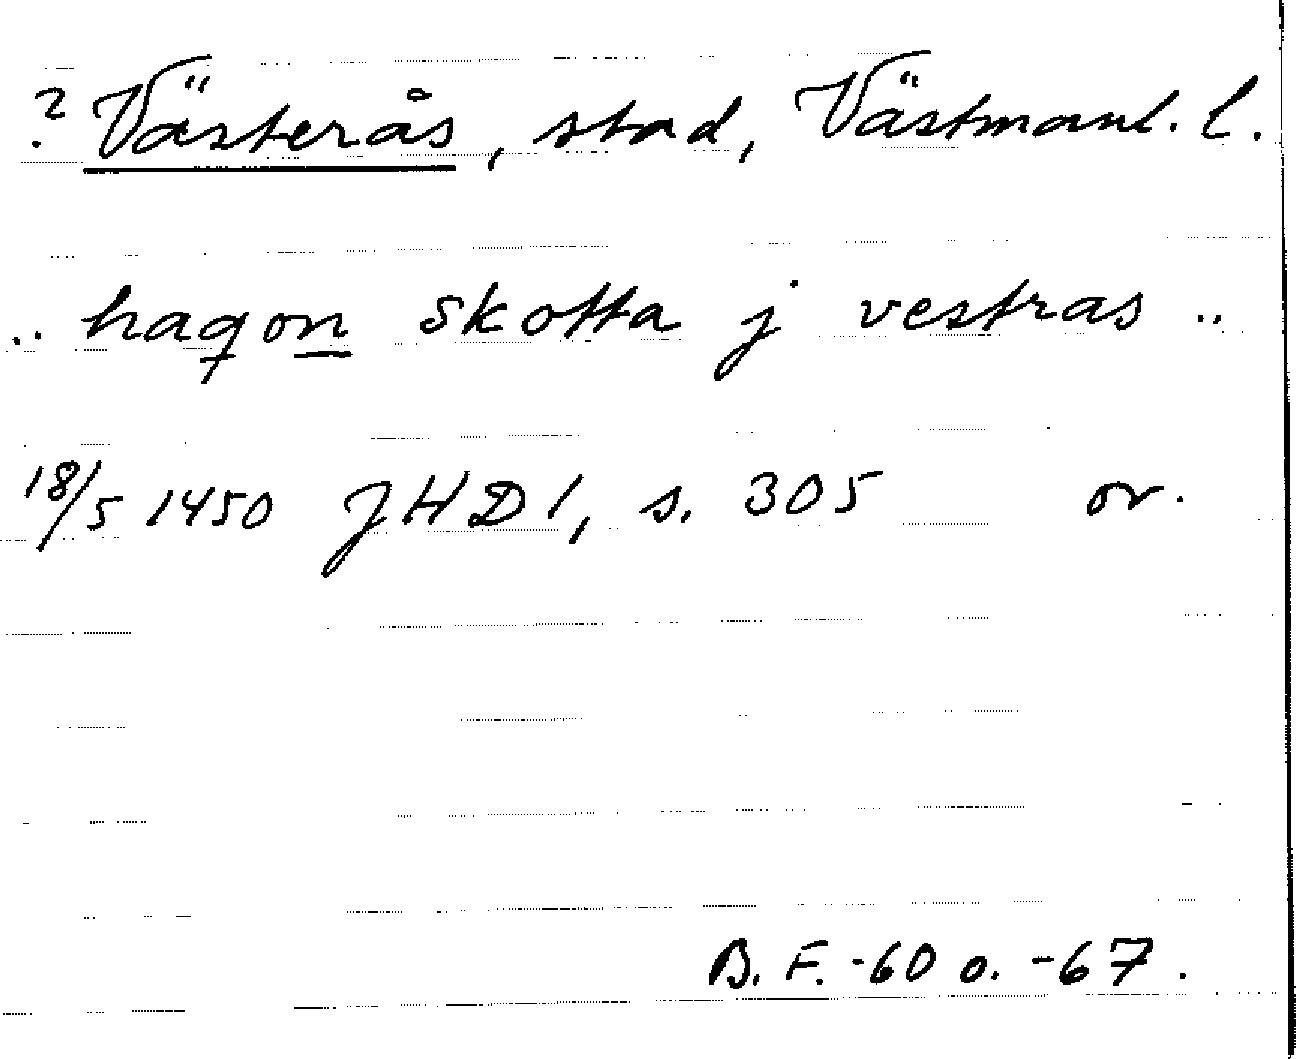 ? Västerås, stad, Västmanl. l.
.. haqon skotta j vestras ..
18/5 1450 JHD 1, s. 305 or.
B. F. -60 o. -67.